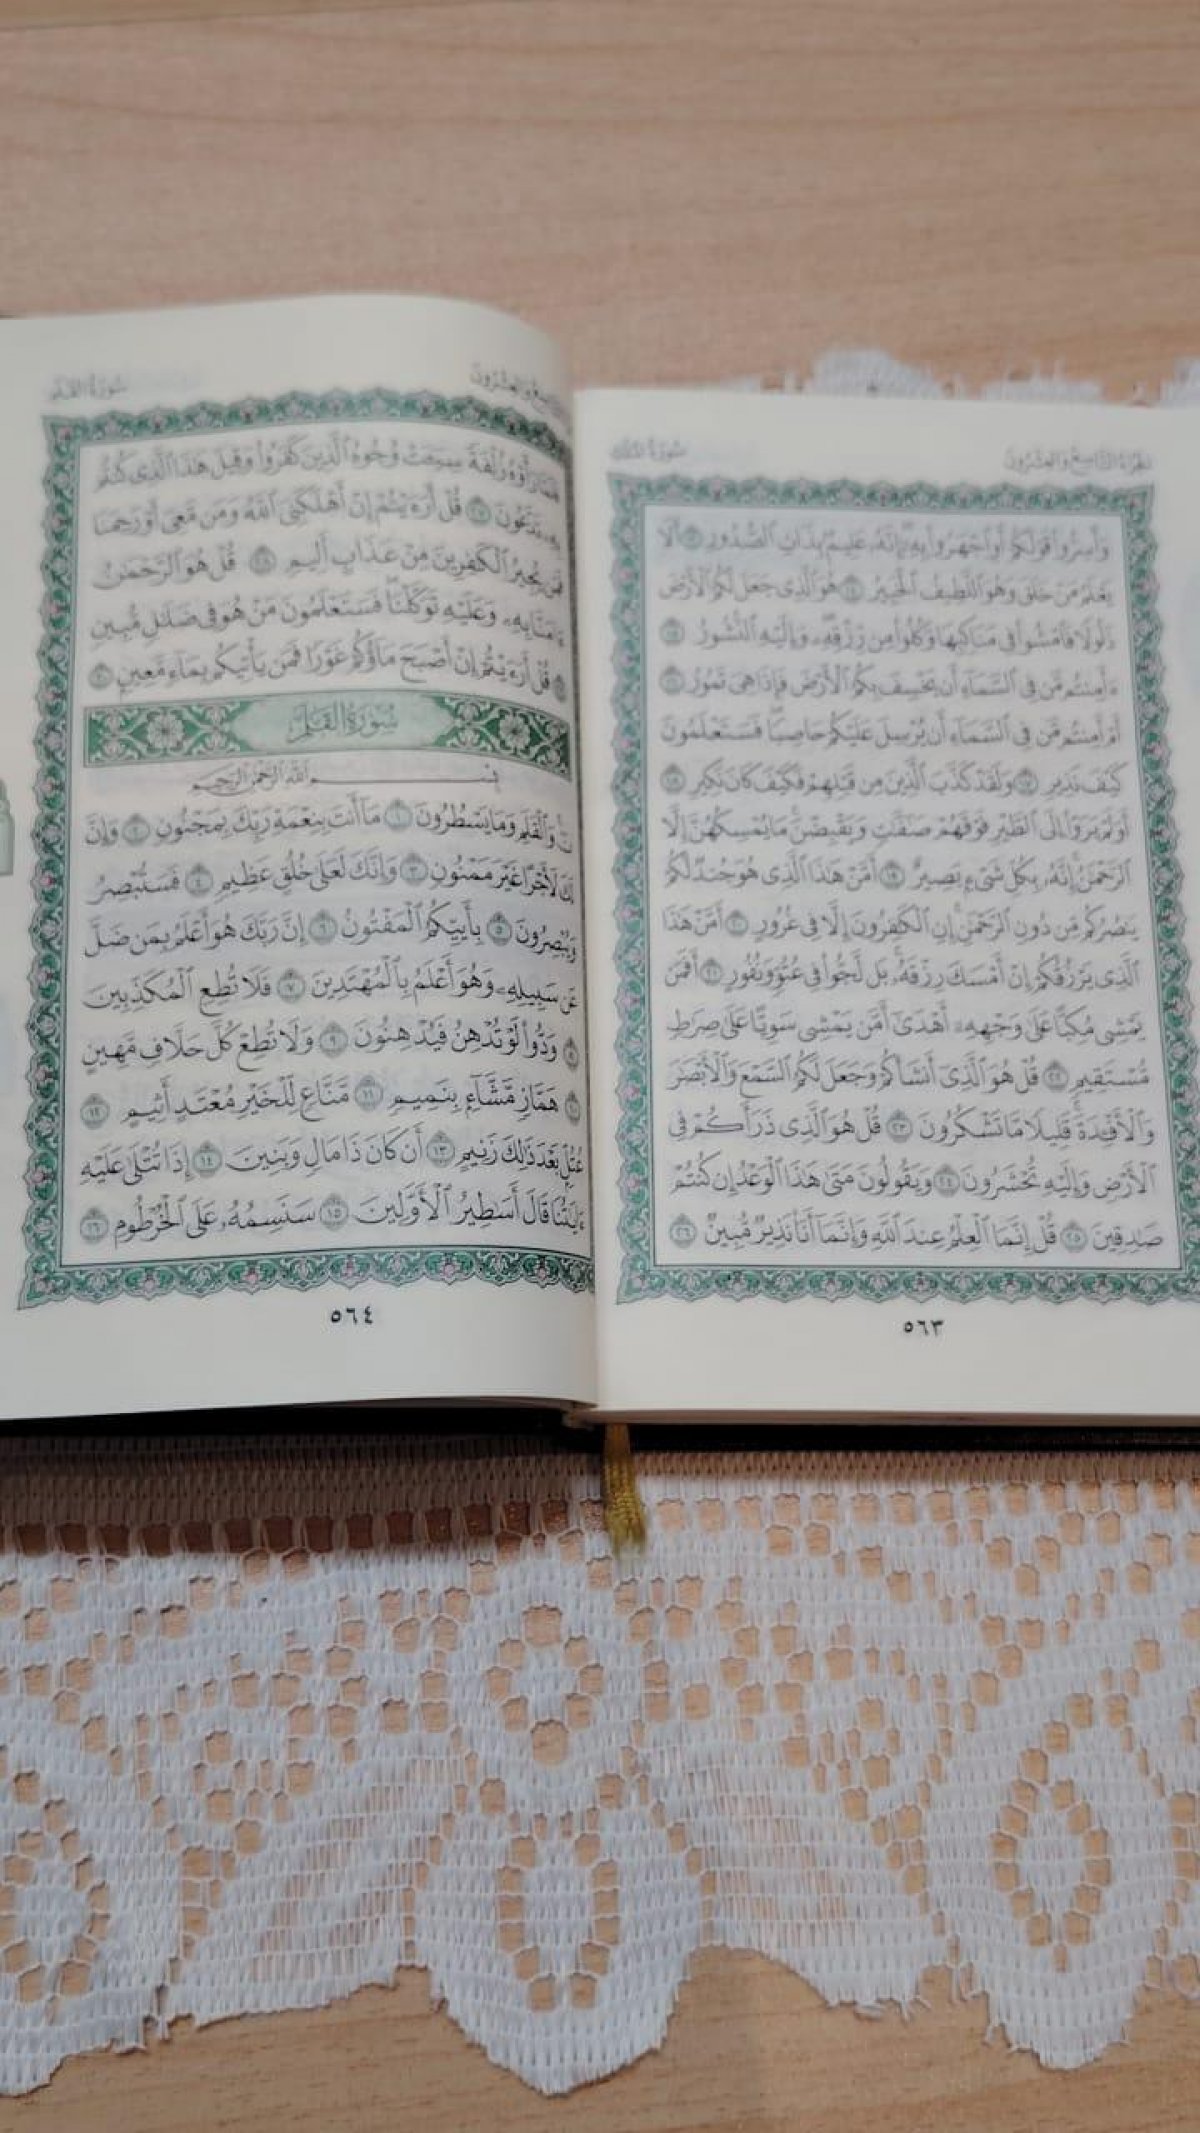 الجزء التاسع والعشرون
سورة الملك
وَأَسِرُّوا۟ قَوْلَكُمْ أَوِ ٱجْهَرُوا۟ بِهِۦٓ إِنَّهُۥ عَلِيمٌۢ بِذَاتِ ٱلصُّدُورِ ١٣ أَلَا
يَعْلَمُ مَنْ خَلَقَ وَهُوَ ٱللَّطِيفُ ٱلْخَبِيرُ ١٤ هُوَ ٱلَّذِى جَعَلَ لَكُمُ ٱلْأَرْضَ
ذَلُولًا فَٱمْشُوا۟ فِى مَنَاكِبِهَا وَكُلُوا۟ مِن رِّزْقِهِۦ وَإِلَيْهِ ٱلنُّشُورُ ١٥
ءَأَمِنتُم مَّن فِى ٱلسَّمَآءِ أَن يَخْسِفَ بِكُمُ ٱلْأَرْضَ فَإِذَا هِىَ تَمُورُ ١٦
أَمْ أَمِنتُم مَّن فِى ٱلسَّمَآءِ أَن يُرْسِلَ عَلَيْكُمْ حَاصِبًا فَسَتَعْلَمُونَ
كَيْفَ نَذِيرِ ١٧ وَلَقَدْ كَذَّبَ ٱلَّذِينَ مِن قَبْلِهِمْ فَكَيْفَ كَانَ نَكِيرِ ١٨
أَوَلَمْ يَرَوْا۟ إِلَى ٱلطَّيْرِ فَوْقَهُمْ صَٰٓفَّٰتٍ وَيَقْبِضْنَ مَا يُمْسِكُهُنَّ إِلَّا
ٱلرَّحْمَٰنُ إِنَّهُۥ بِكُلِّ شَىْءٍۭ بَصِيرٌ ١٩ أَمَّنْ هَٰذَا ٱلَّذِى هُوَ جُندٌ لَّكُمْ
يَنصُرُكُم مِّن دُونِ ٱلرَّحْمَٰنِ إِنِ ٱلْكَٰفِرُونَ إِلَّا فِى غُرُورٍ ٢٠ أَمَّنْ هَٰذَا
ٱلَّذِى يَرْزُقُكُمْ إِنْ أَمْسَكَ رِزْقَهُۥ بَل لَّجُّوا۟ فِى عُتُوٍّ وَنُفُورٍ ٢١ أَفَمَن
يَمْشِى مُكِبًّا عَلَىٰ وَجْهِهِۦٓ أَهْدَىٰٓ أَمَّن يَمْشِى سَوِيًّا عَلَىٰ صِرَٰطٍ
مُّسْتَقِيمٍ ٢٢ قُلْ هُوَ ٱلَّذِىٓ أَنشَأَكُمْ وَجَعَلَ لَكُمُ ٱلسَّمْعَ وَٱلْأَبْصَٰرَ
وَٱلْأَفْـِٔدَةَ قَلِيلًا مَّا تَشْكُرُونَ ٢٣ قُلْ هُوَ ٱلَّذِى ذَرَأَكُمْ فِى
ٱلْأَرْضِ وَإِلَيْهِ تُحْشَرُونَ ٢٤ وَيَقُولُونَ مَتَىٰ هَٰذَا ٱلْوَعْدُ إِن كُنتُمْ
صَٰدِقِينَ ٢٥ قُلْ إِنَّمَا ٱلْعِلْمُ عِندَ ٱللَّهِ وَإِنَّمَآ أَنَا۠ نَذِيرٌ مُّبِينٌ ٢٦
٥٦٣
والعشرون
سورة القلم
فَلَمَّا رَأَوْهُ زُلْفَةً سِيٓـَٔتْ وُجُوهُ ٱلَّذِينَ كَفَرُوا۟ وَقِيلَ هَٰذَا ٱلَّذِى كُنتُم
بِهِۦ تَدَّعُونَ ٢٧ قُلْ أَرَءَيْتُمْ إِنْ أَهْلَكَنِىَ ٱللَّهُ وَمَن مَّعِىَ أَوْ رَحِمَنَا
فَمَن يُجِيرُ ٱلْكَٰفِرِينَ مِنْ عَذَابٍ أَلِيمٍ ٢٨ قُلْ هُوَ ٱلرَّحْمَٰنُ
ءَامَنَّا بِهِۦ وَعَلَيْهِ تَوَكَّلْنَا فَسَتَعْلَمُونَ مَنْ هُوَ فِى ضَلَٰلٍ مُّبِينٍ
٢٩ قُلْ أَرَءَيْتُمْ إِنْ أَصْبَحَ مَآؤُكُمْ غَوْرًا فَمَن يَأْتِيكُم بِمَآءٍ مَّعِينٍۭ ٣٠
سُورَةُ القَلَمِ
بِسْمِ ٱللَّهِ ٱلرَّحْمَٰنِ ٱلرَّحِيمِ
نٓ وَٱلْقَلَمِ وَمَا يَسْطُرُونَ ١ مَآ أَنتَ بِنِعْمَةِ رَبِّكَ بِمَجْنُونٍ ٢ وَإِنَّ
لَكَ لَأَجْرًا غَيْرَ مَمْنُونٍ ٣ وَإِنَّكَ لَعَلَىٰ خُلُقٍ عَظِيمٍ ٤ فَسَتُبْصِرُ
وَيُبْصِرُونَ ٥ بِأَييِّكُمُ ٱلْمَفْتُونُ ٦ إِنَّ رَبَّكَ هُوَ أَعْلَمُ بِمَن ضَلَّ
عَن سَبِيلِهِۦ وَهُوَ أَعْلَمُ بِٱلْمُهْتَدِينَ ٧ فَلَا تُطِعِ ٱلْمُكَذِّبِينَ
٨ وَدُّوا۟ لَوْ تُدْهِنُ فَيُدْهِنُونَ ٩ وَلَا تُطِعْ كُلَّ حَلَّافٍ مَّهِينٍ
١٠ هَمَّازٍ مَّشَّآءٍۭ بِنَمِيمٍ ١١ مَّنَّاعٍ لِّلْخَيْرِ مُعْتَدٍ أَثِيمٍ ١٢
عُتُلٍّۭ بَعْدَ ذَٰلِكَ زَنِيمٍ ١٣ أَن كَانَ ذَا مَالٍ وَبَنِينَ ١٤ إِذَا تُتْلَىٰ عَلَيْهِ
ءَايَٰتُنَا قَالَ أَسَٰطِيرُ ٱلْأَوَّلِينَ ١٥ سَنَسِمُهُۥ عَلَى ٱلْخُرْطُومِ ١٦
٥٦٤